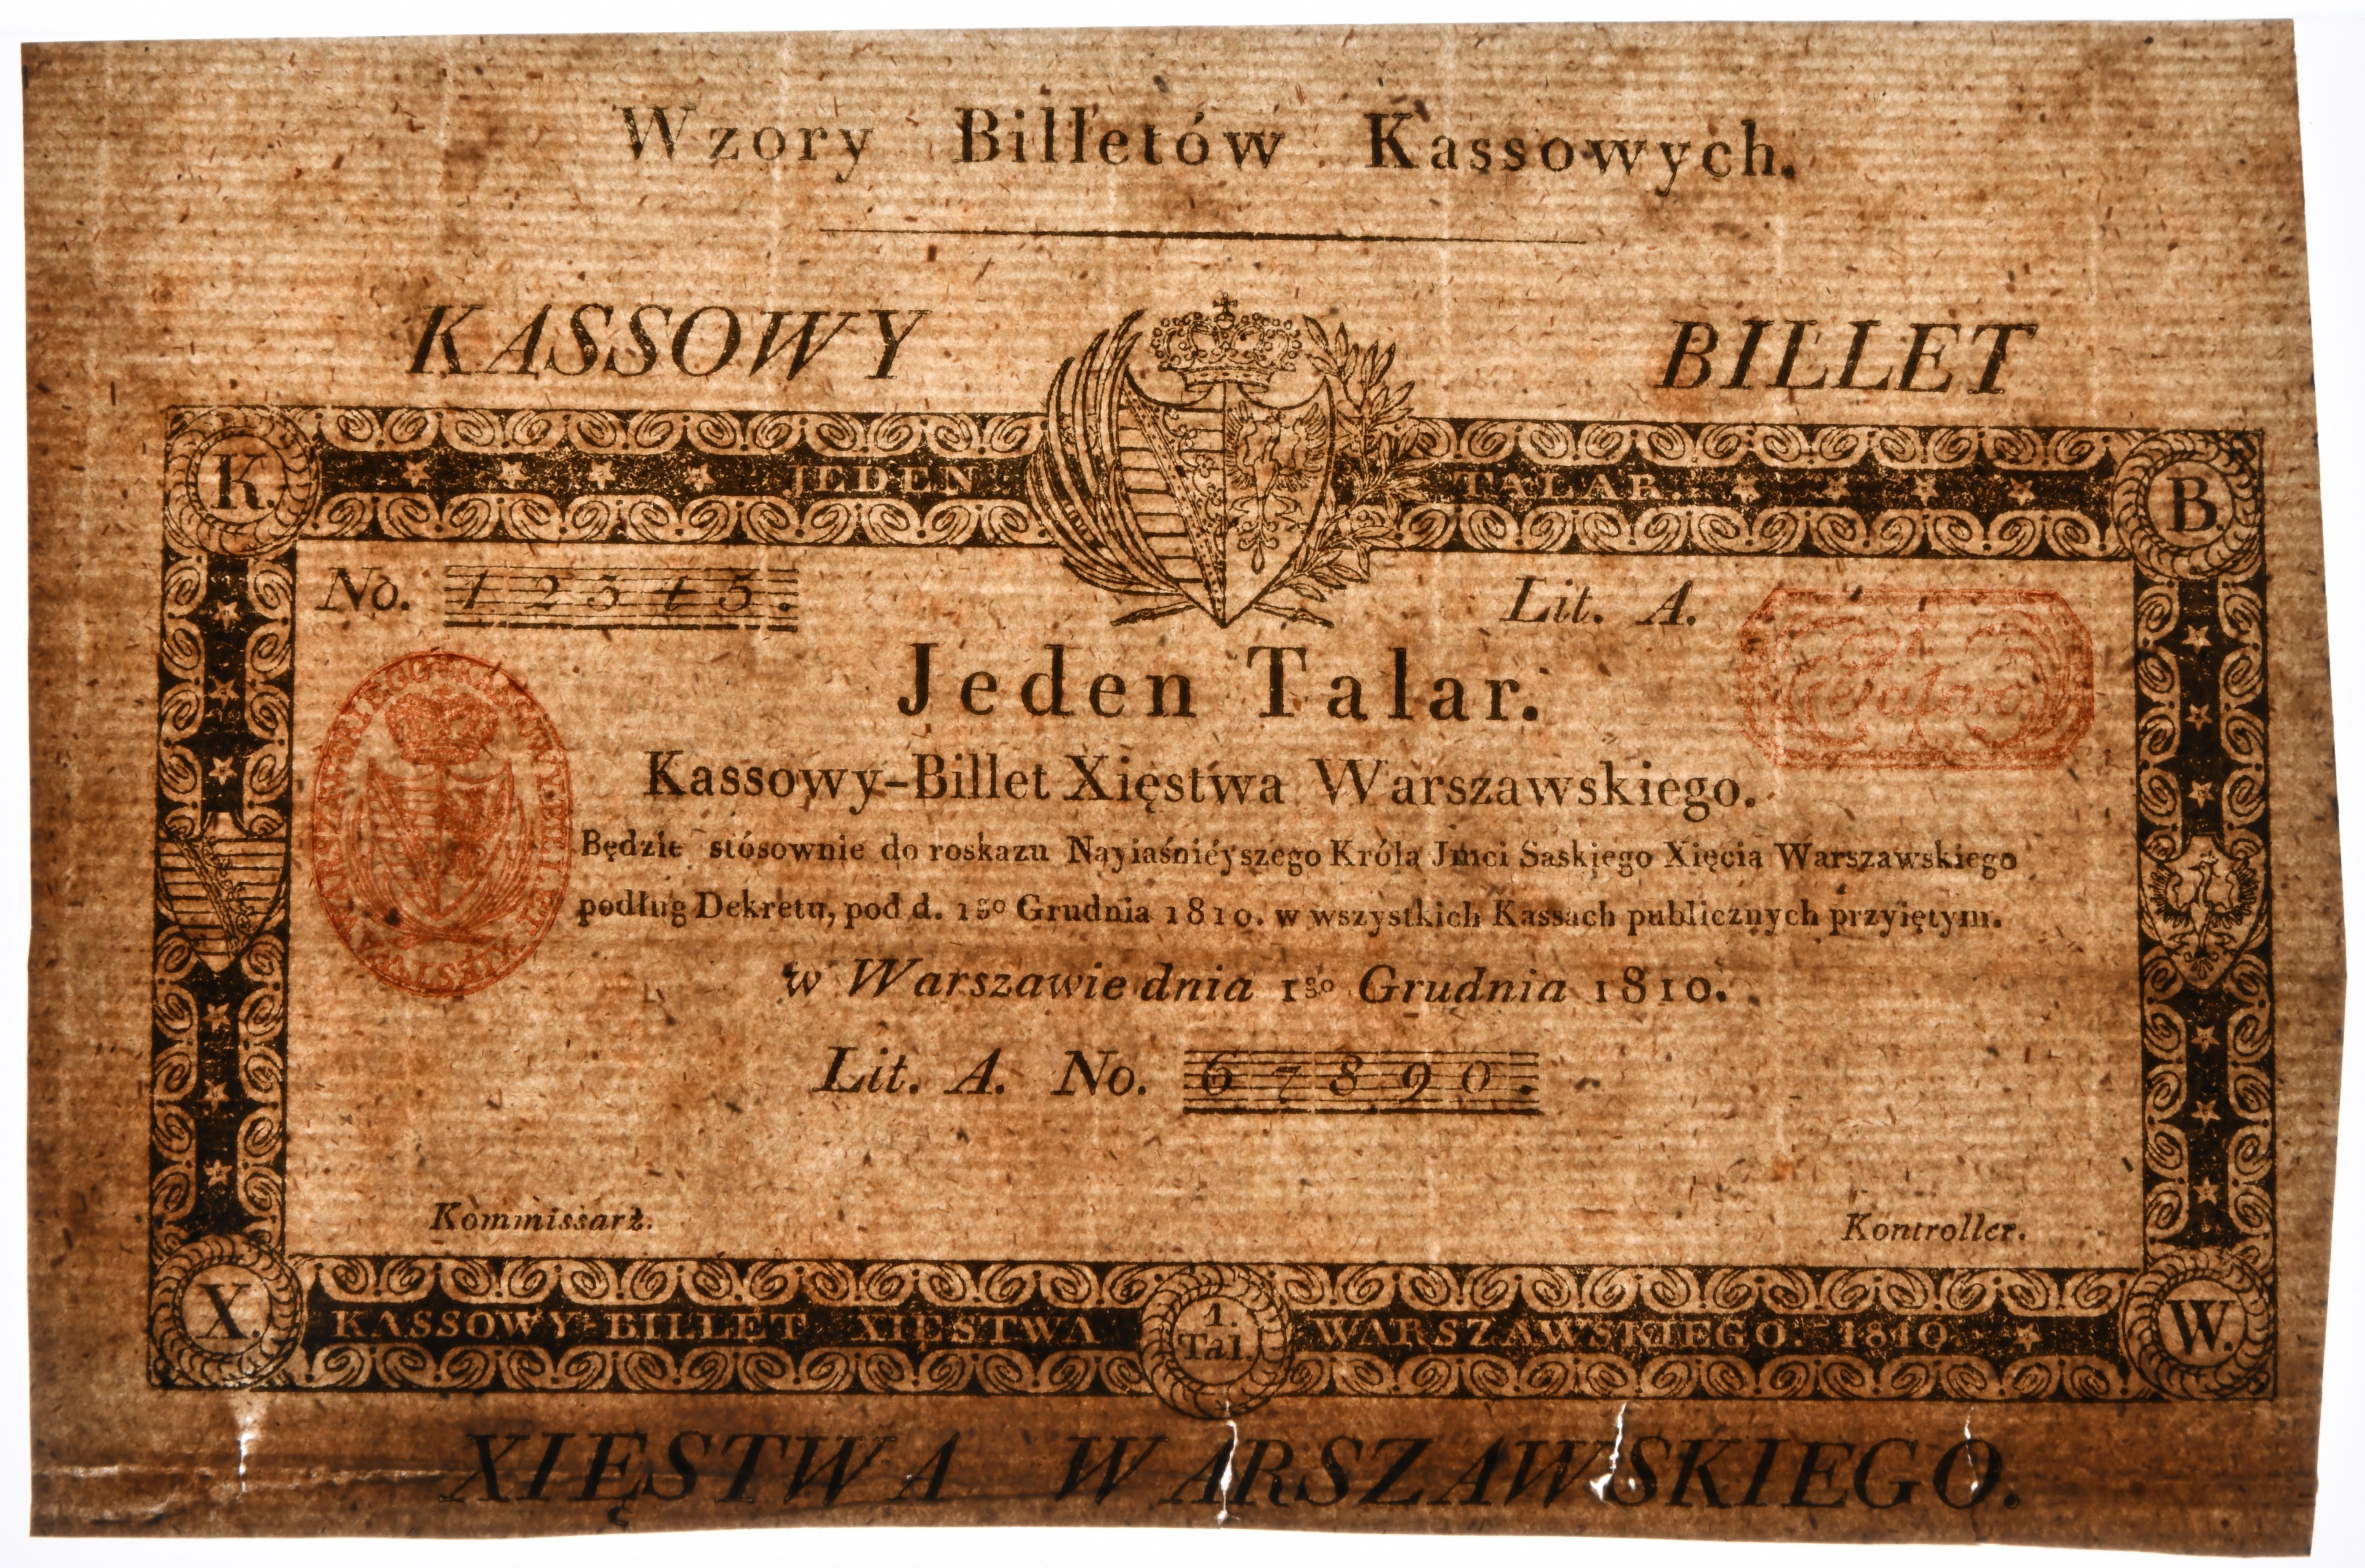 Wzory Billetów Kassowych.
KASSOWY BILLET
K. JEDEN TALAR. B.
No. 12345. Lit. A.
Jeden Talar.
Kassowy-Billet Xięstwa Warszawskiego.
Będzie stósownie do roskazu Nayiaśnieyszego Króla Jmci Saskiego Xięcia Warszawskiego
podług Dekretu, pod d. 1go Grudnia 1810. w wszystkich Kassach publicznych przyiętym.
w Warszawie dnia 1go Grudnia 1810.
Lit. A. No. 67890.
Kommissarz. Kontroller.
X. KASSOWY-BILLET XIĘSTWA 1. Tal. WARSZAWSKIEGO. 1810. W.
XIĘSTWA WARSZAWSKIEGO.